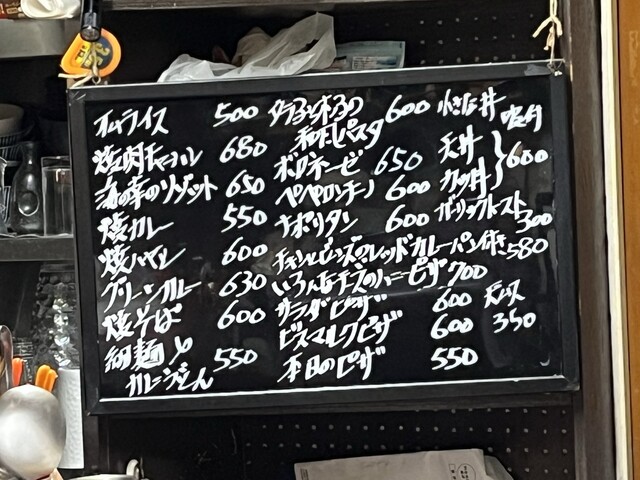 オムライス 500
焼肉チャーハン 680
海の幸のリゾット 650
焼カレー 550
焼ハヤシ 600
グリーンカレー 630
焼そば 600
細麺
カレーうどん 550
タラコときのこの
和風パスタ 600
ボロネーゼ 650
ペペロンチーノ 600
ナポリタン 600
チキンとビーンズのレッドカレーパン付き 580
いろんなチーズのハニーピザ 700
サラダピザ 600
ビスマルクピザ 600
本日のピザ 550
かきたま丼
吸付
天丼
カツ丼
600
ガーリックトースト
300
350